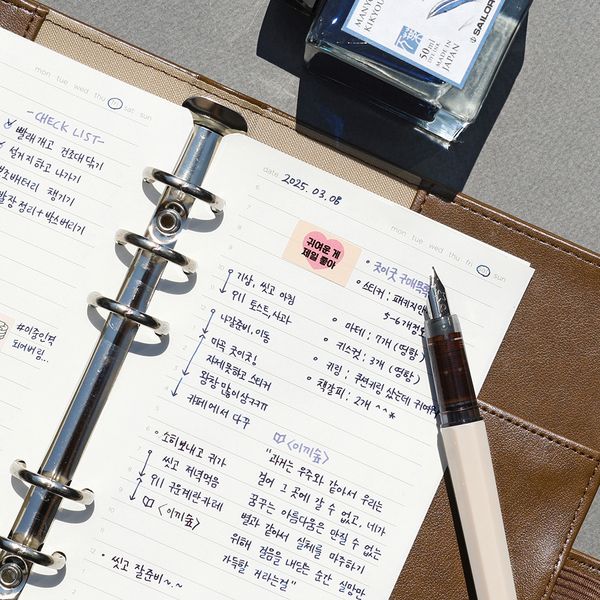 mon tue wed thu fri sat sun
-CHECK LIST-
빨래개고 건조대 닦기
설거지하고 나가기
보조배터리 챙기기
#이중인격
되어버림...
MANY
KIKYOU
50ml
DYE INK
MADE IN
JAPAN
SAILOR
date 2025. 03. 08
mon tue wed thu fri sat sun
귀여운 게
제일 좋아
• 굿이굿 구매목록
• 스티커 : 패키지만
5-6개정도
• 마테 : 7개 (영항)
• 키스컷 : 3개 (영항)
• 키링 : 쿠션키링 샀는데 귀여워
• 책갈피 : 2개 ^^*
기상, 씻고 아침
토스트, 사과
나갈준비, 이동
마곡 굿이굿!
자제못하고 스티커
왕창 많이 삼ㅋㅋㅋ
카페에서 다꾸
• 소히보내고 귀가
씻고 저녁먹음
구운계란카레
<이끼숲>
• 씻고 잘준비~.~
<이끼숲>
"과거는 우주와 같아서 우리는
걸어 그 곳에 갈 수 없고, 네가
꿈꾸는 아름다움은 만질 수 없는
별과 같아서 실체를 마주하기
위해 걸음을 내딛는 순간 실망만
가득할 거라는걸"